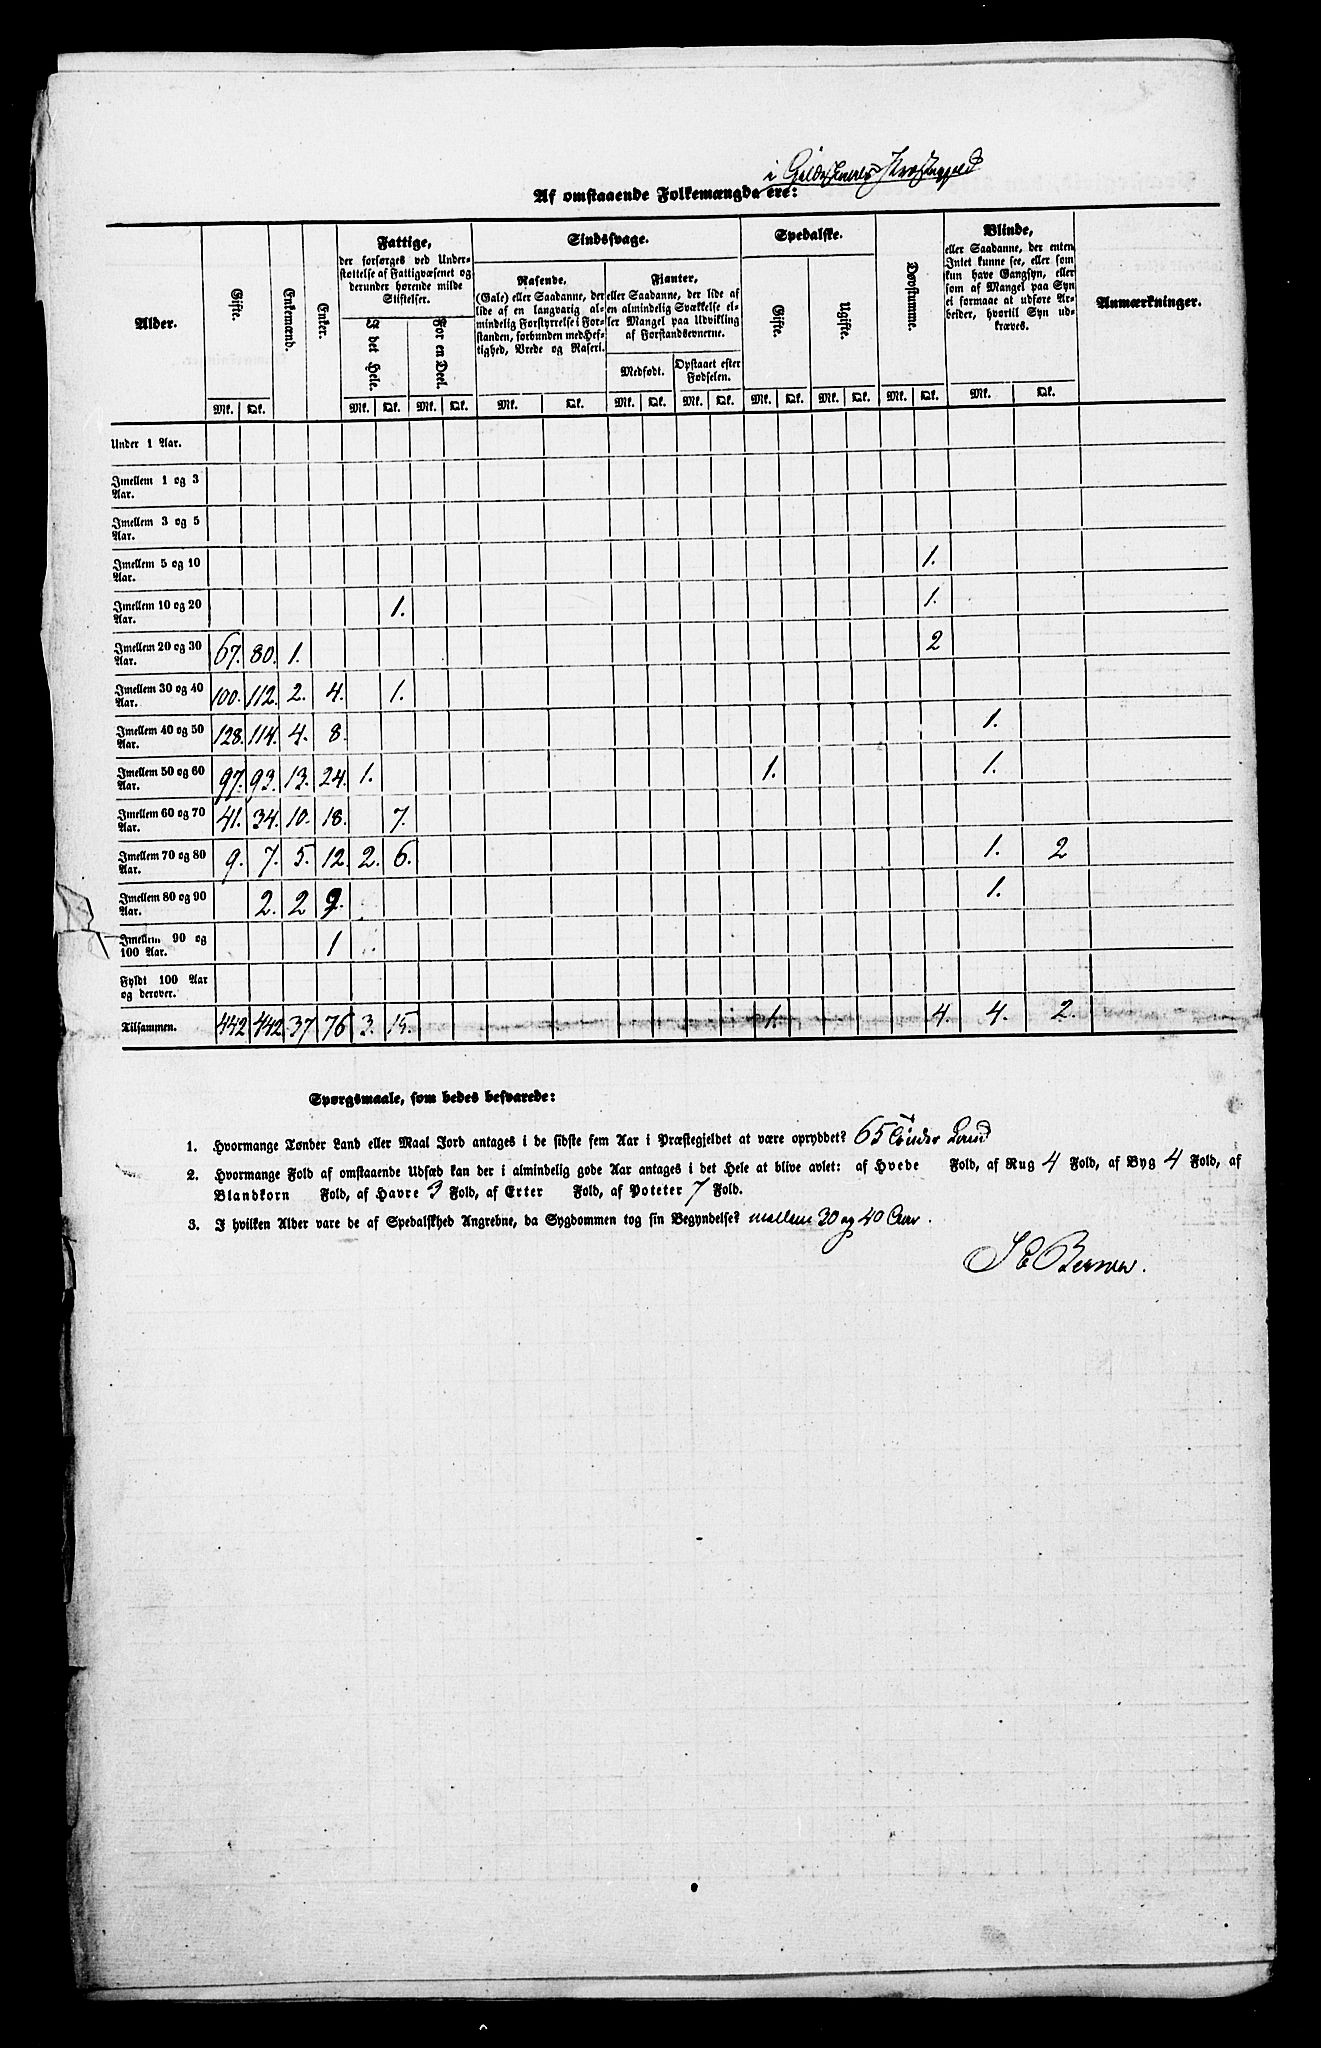 i Gildeskaals Præstegjeld
Af omstaaende Folkemængde ere:
Alder. Gifte. Enkemænd. Enker. Fattige, der forsørges ved Understøttelse af Fattigvæsenet og derunder hørende milde Stiftelser. Sindssvage. Spedalske. Døvstumme. Blinde, eller Saadanne, der enten Intet kunne see, eller som kun have Gangsyn, eller som af Mangel paa Syn ei formaae at udføre Arbeider, hvortil Syn udkræves. Anmærkninger.
I det Hele. For en Deel. Rasende. (Gale) eller Saadanne, der lide af en langvarig almindelig Forstyrrelse i Forstanden, forbunden med Heftighed, Vrede og Raseri. Fianter, eller Saadanne, der lide af en almindelig Svækkelse eller Mangel paa Udvikling af Forstandsevnerne. Gifte. Ugifte.
Medfødt. Opstaaet efter Fødselen.
Mk. Qk. Mk. Qk. Mk. Qk. Mk. Qk. Mk. Qk. Mk. Qk. Mk. Qk. Mk. Qk. Mk. Qk. Mk. Qk.
Under 1 Aar.
Imellem 1 og 3 Aar.
Imellem 3 og 5 Aar.
Imellem 5 og 10 Aar. 1.
Imellem 10 og 20 Aar. 1. 1.
Imellem 20 og 30 Aar. 67. 80. 1. 2
Imellem 30 og 40 Aar. 100. 112. 2. 4. 1.
Imellem 40 og 50 Aar. 128. 114. 4. 8. 1.
Imellem 50 og 60 Aar. 97. 93. 13. 24. 1. 1. 1.
Imellem 60 og 70 Aar. 41. 34. 10. 18. 7.
Imellem 70 og 80 Aar. 9. 7. 5. 12. 2. 6. 1. 2
Imellem 80 og 90 Aar. 2. 2 9. 1.
Imellem 90 og 100 Aar. 1
Fyldt 100 Aar og derover.
Tilsammen. 442 442 37 76 3. 15. 1. 4. 4. 2.
Spørgsmaale, som bedes besvarede:
1. Hvormange Tønder Land eller Maal Jord antages i de sidste fem Aar i Præstegjeldet at være opryddet? 65 Tønder Land
2. Hvormange Fold af omstaaende Udsæd kan der i almindelig gode Aar antages i det Hele at blive avlet: af Hvede Fold, af Rug 4 Fold, af Byg 4 Fold, af
Blandkorn Fold, af Havre 3 Fold, af Erter Fold, af Poteter 7 Fold.
3. I hvilken Alder vare de af Spedalskhed Angrebne, da Sygdommen tog sin Begyndelse? mellem 30 og 40 Aar.